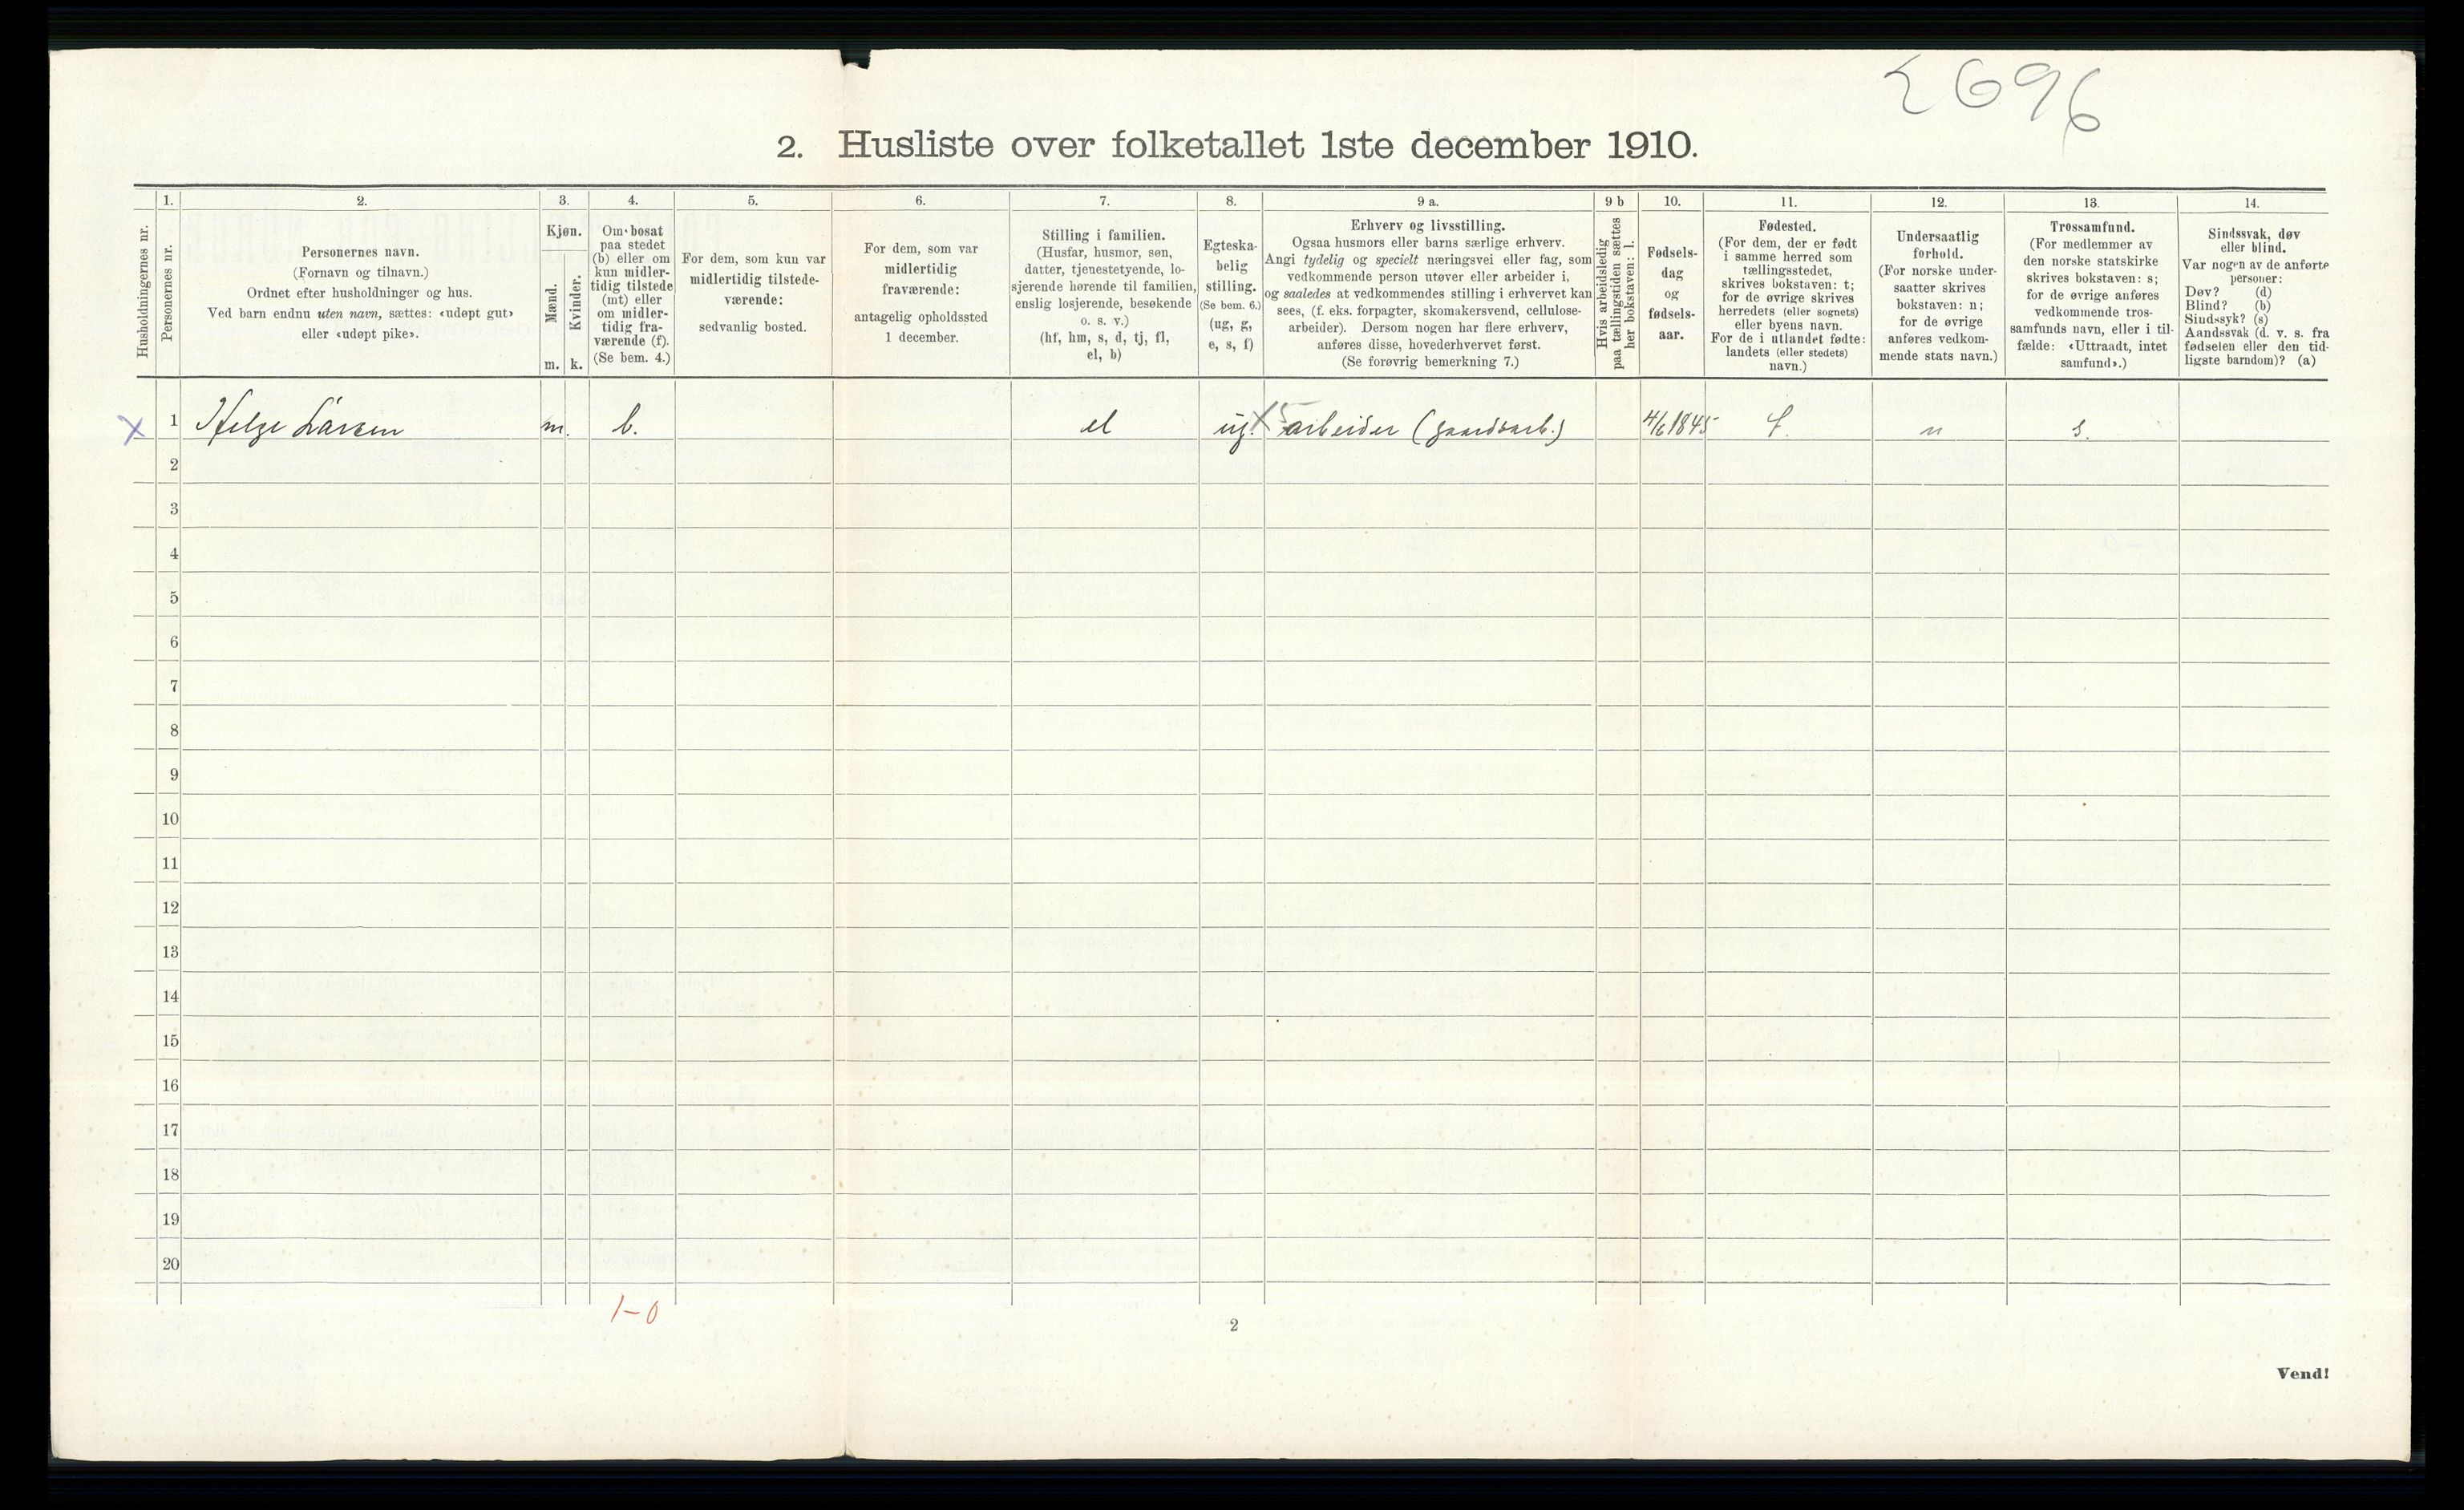 2696
2. Husliste over folketallet 1ste december 1910.
Husholdningernes nr.
1.
Personernes nr.
2.
Personernes navn.
(Fornavn og tilnavn.)
Ordnet efter husholdninger og hus.
Ved barn endnu uten navn, sættes: «udøpt gut»
eller «udøpt pike».
3.
Kjøn.
Mænd.
m.
Kvinder.
k.
4.
Om bosat
paa stedet
(b) eller om
kun midler-
tidig tilstede
(mt) eller
om midler-
tidig fra-
værende (f).
(Se bem. 4.)
5.
For dem, som kun var
midlertidig tilstede-
værende:
sedvanlig bosted.
6.
For dem, som var
midlertidig
fraværende:
antagelig opholdssted
1 december.
7.
Stilling i familien.
(Husfar, husmor, søn,
datter, tjenestetyende, lo-
sjerende hørende til familien,
enslig losjerende, besøkende
o. s. v.)
(hf, hm, s, d, tj, fl,
el, b)
8.
Egteska-
belig
stilling.
(Se bem. 6.)
(ug, g,
e, s, f)
9 a.
Erhverv og livsstilling.
Ogsaa husmors eller barns særlige erhverv.
Angi tydelig og specielt næringsvei eller fag, som
vedkommende person utøver eller arbeider i,
og saaledes at vedkommendes stilling i erhvervet kan
sees, (f. eks. forpagter, skomakersvend, cellulose-
arbeider). Dersom nogen har flere erhverv,
anføres disse, hovederhvervet først.
(Se forøvrig bemerkning 7.)
9 b
Hvis arbeidsledig
paa tællingstiden sættes
her bokstaven: l.
10.
Fødsels-
dag
og
fødsels-
aar.
11.
Fødested.
(For dem, der er født
i samme herred som
tællingsstedet,
skrives bokstaven: t;
for de øvrige skrives
herredets (eller sognets)
eller byens navn.
For de i utlandet fødte:
landets (eller stedets)
navn.)
12.
Undersaatlig
forhold.
(For norske under-
saatter skrives
bokstaven: n;
for de øvrige
anføres vedkom-
mende stats navn.)
13.
Trossamfund.
(For medlemmer av
den norske statskirke
skrives bokstaven: s;
for de øvrige anføres
vedkommende tros-
samfunds navn, eller i til-
fælde: «Uttraadt, intet
samfund».)
14.
Sindssvak, døv
eller blind.
Var nogen av de anførte
personer:
Døv? (d)
Blind? (b)
Sindssyk? (s)
Aandssvak (d. v. s. fra
fødselen eller den tid-
ligste barndom)? (a)
X 1 Helge Larsen m. b. el ug. X 5 arbeider (gaardsarb.) 4/6 1845 t. n s.
2
3
4
5
6
7
8
9
10
11
12
13
14
15
16
17
18
19
20
1-0
2
Vend!